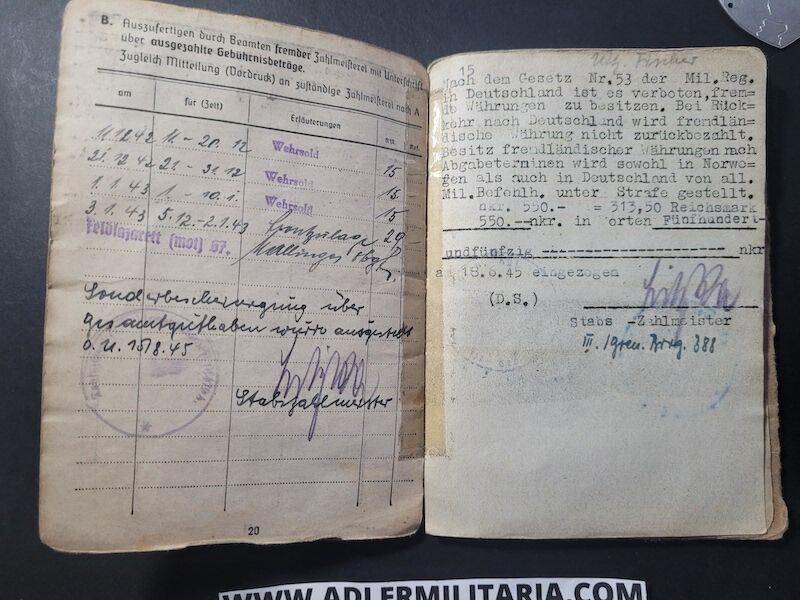 B. Auszufertigen durch Beamten fremder Zahlmeisterei mit Unterschrift
über ausgezahlte Gebührnisbeträge.
Zugleich Mitteilung (Vordruck) an zuständige Zahlmeisterei nach A
am für (Zeit) Erläuterungen
11.12 42 11. - 20. 12 Wehrsold 15
21. 12 42 21. - 31. 12 Wehrsold 15
1. 1. 43 1. 10. 1. Wehrsold 15
3. 1. 43 5.12.-2.1.43 Frontzulage 29
Feldlazarett (mot) 67.
Sonderbescheinigung über
Gesamtguthaben wurde ausgestellt
O. U. 15/8.45
Stabszahlmeister
20
Uffz. Fischer
15
Nach dem Gesetz Nr.53 der Mil.Reg.
in Deutschland ist es verboten,frem=
de Währungen zu besitzen. Bei Rück=
kehr nach Deutschland wird fremdlän=
dische Währung nicht zurückbezahlt.
Besitz fremdländischer Währungen nach
Abgabeterminen wird sowohl in Norwe=
gen als auch in Deutschland von all.
Mil.Befehlh. unter Strafe gestellt.
nkr. 550.- = 313,50 Reichsmark
550.--nkr. in Worten Fünfhundert-
undfünfzig -------------------- nkr
am 18.6.45 eingezogen
(D.S.)
Stabs -Zahlmeister
III. /Gren. Brig. 388
WWW.ADLERMILITARIA.COM